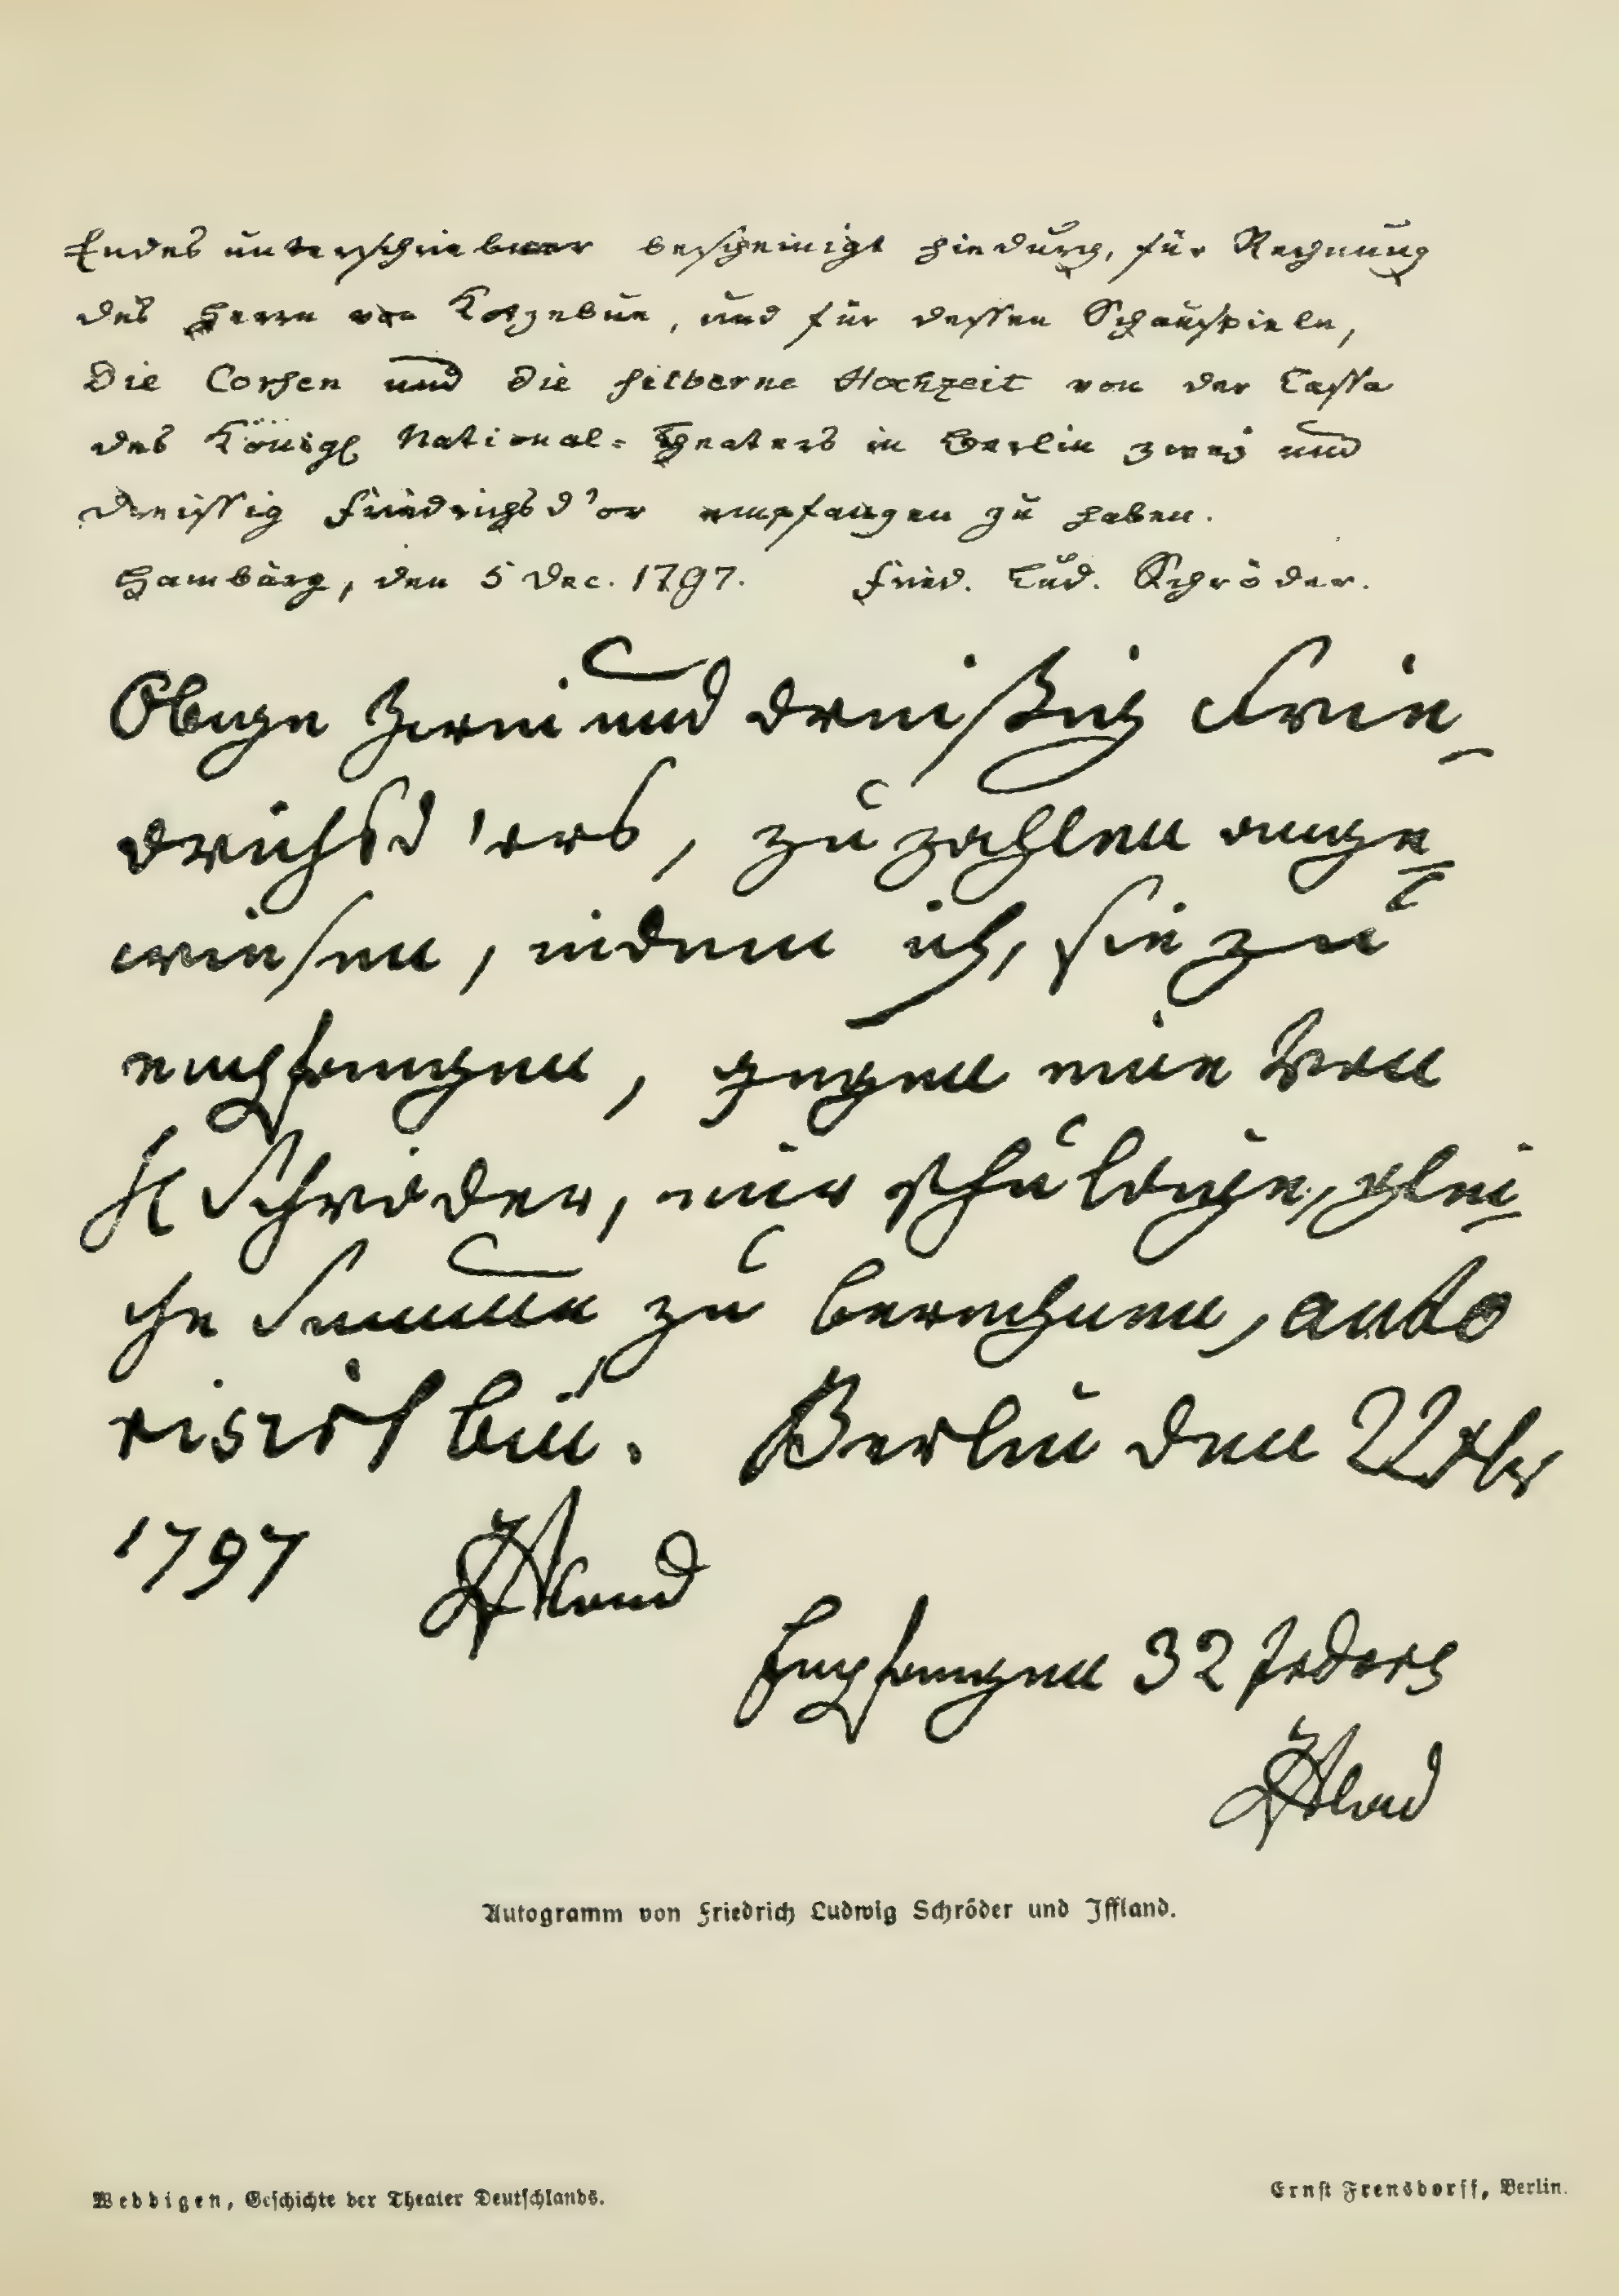 Endes unterschriebner bescheinigt hiedurch, für Rechnung
des Herrn von Kotzebue, und für dessen Schauspiele,
Die Corsen und die silberne Hochzeit von der Cassa
des Königl National-Theaters in Berlin zwei und
dreissig Friedrichsd'or empfangen zu haben.
Hamburg, den 5 Dec. 1797. Fried. Lud. Schröder.
Obige Zwei und dreißig Frie-
drichsd'ors, zu zahlen ange-
wiesen, indem ich, sie zu
empfangen, gegen eine von
H Schröder, mir schuldige, glei-
che Summe zu berechnen, auto
risirt bin. Berlin den 22
1797 Iffland
Empfangen 32 Frdors
Iffland
Autogramm von Friedrich Ludwig Schröder und Iffland.
Weddigen, Geschichte der Theater Deutschlands.
Ernst Frensdorff, Berlin.